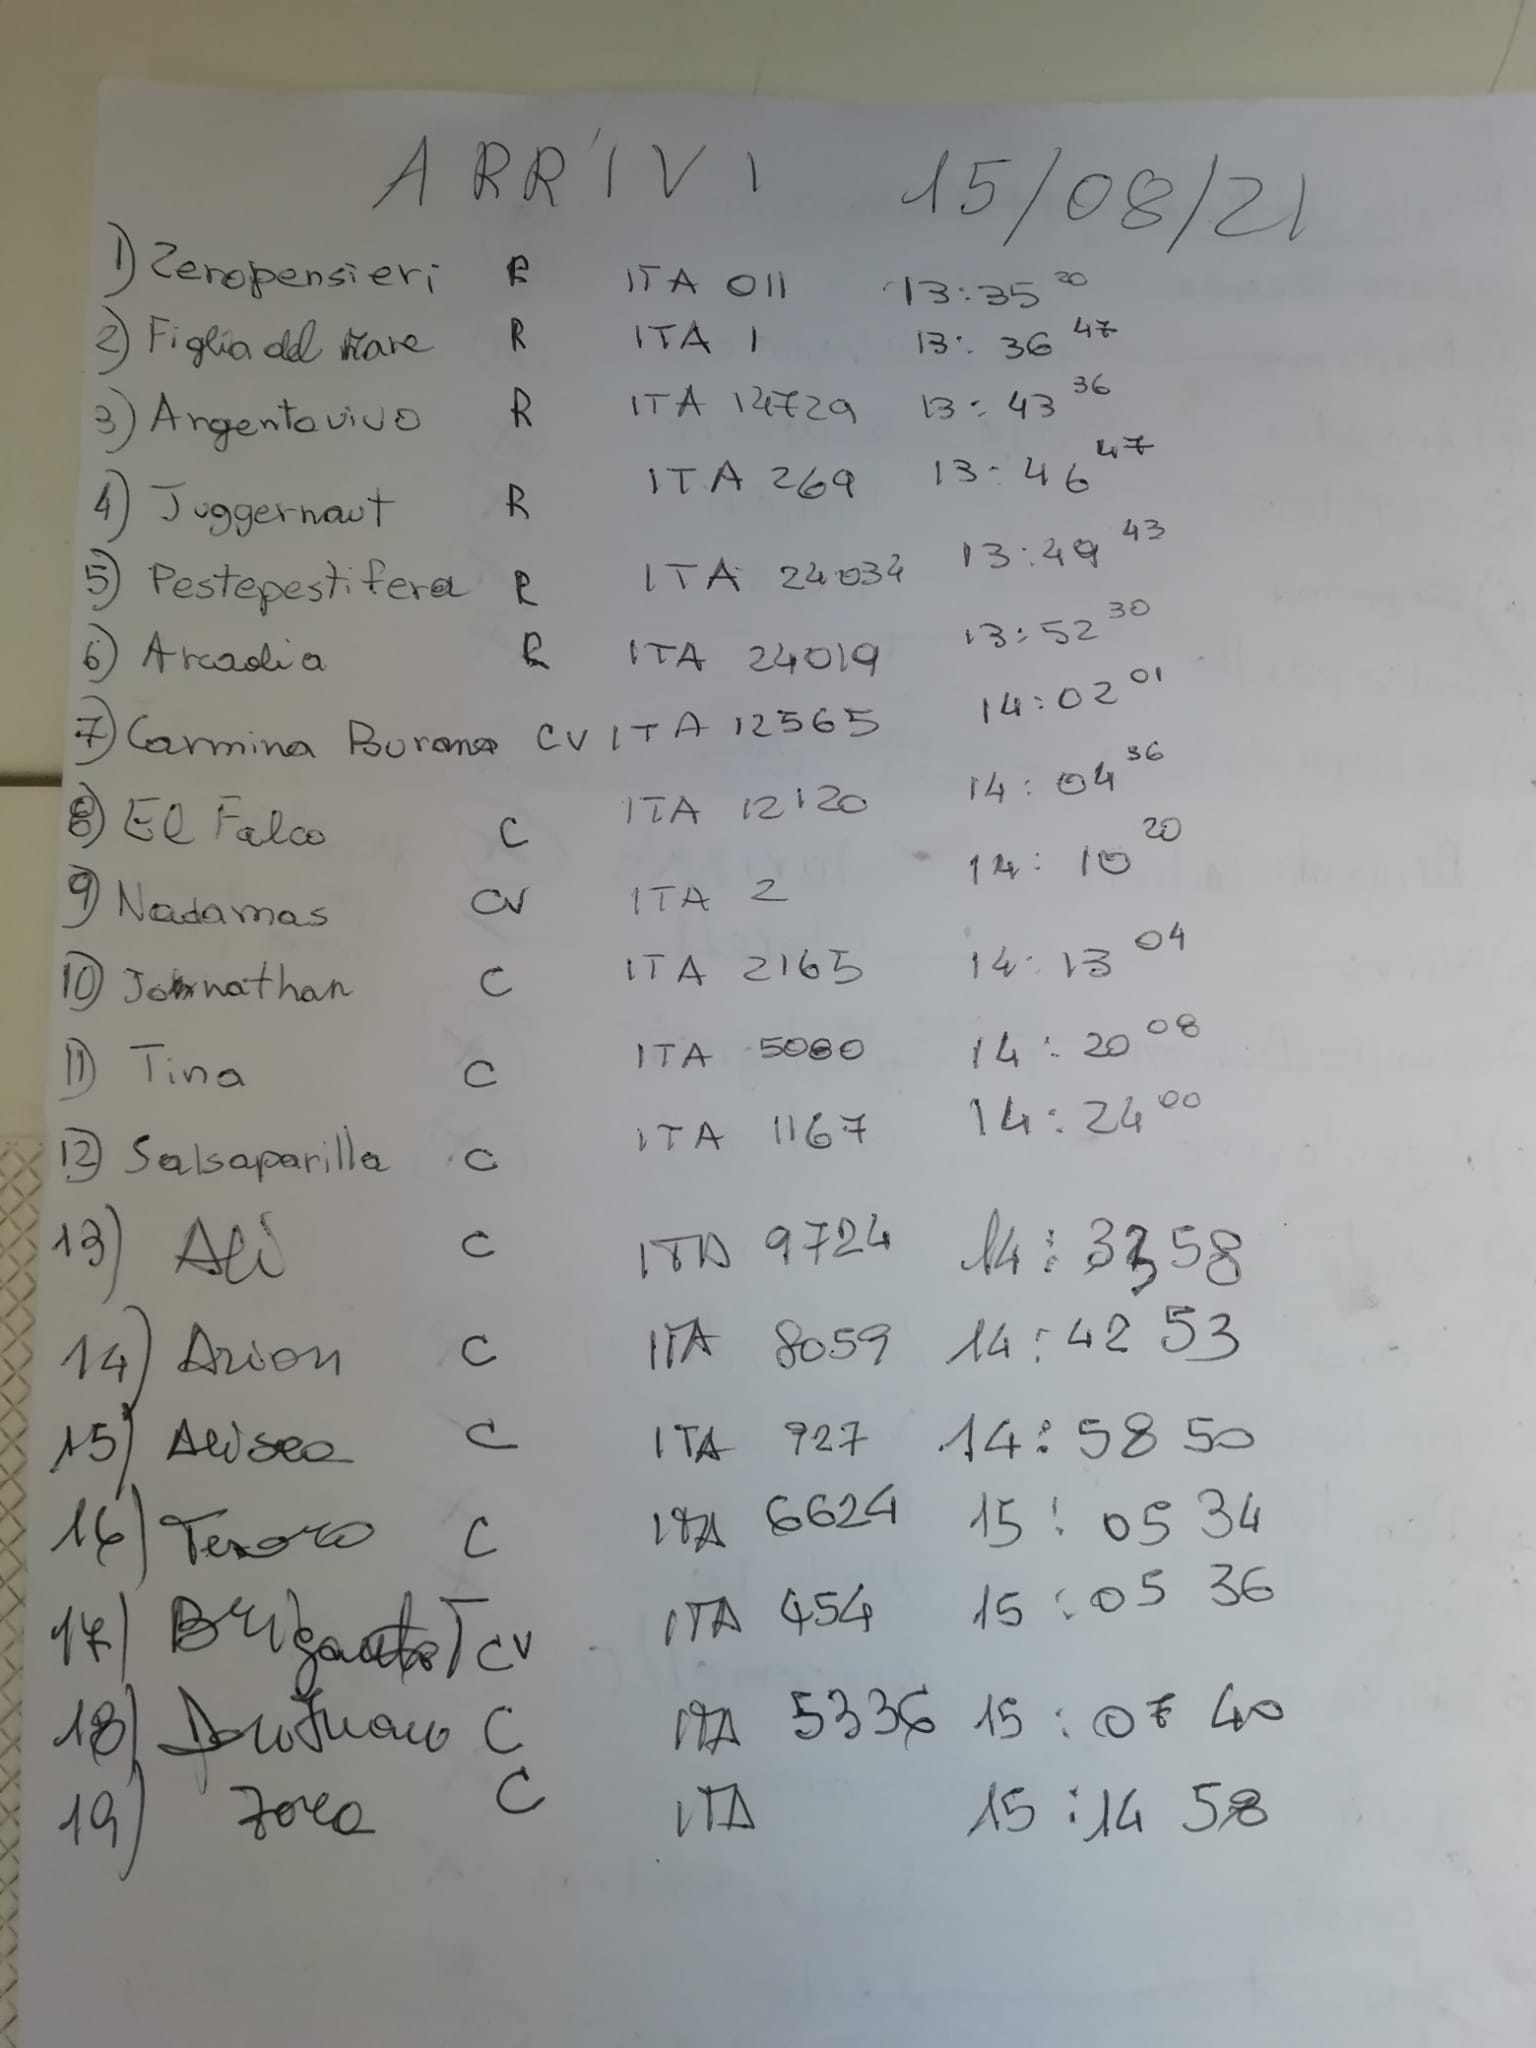 ARRIVI 15/08/21
1) Zeropensieri R ITA 011 13:35 20
2) Figlia del Mare R ITA 1 13:36 47
3) Argentovivo R ITA 14729 13:43 36
4) Juggernaut R ITA 269 13:46 47
5) Pestepestifera R ITA 24034 13:49 43
6) Arcadia R ITA 24019 13:52 30
7) Carmina Burana CV ITA 12565 14:02 01
8) El Falco C ITA 12120 14:04 36
9) Nadamas CV ITA 2 14:10 20
10) Johnathan C ITA 2165 14:13 04
11) Tina C ITA 5080 14:20 08
12) Salsaparilla C ITA 1167 14:24 00
13) Alì C ITA 9724 14:33 58
14) Arion C ITA 8059 14:42 53
15) Alisea C ITA 927 14:58 50
16) Tesoro C ITA 6624 15:05 34
17) CV ITA 454 15:05 36
18) C ITA 5336 15:07 40
19) C ITA 15:14 58